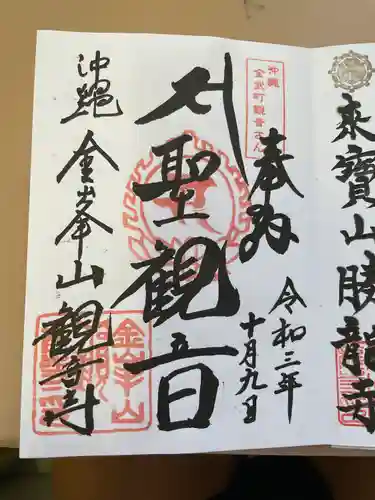 東寳山勝龍寺
沖縄
金武町観音さん
奉拝
令和三年
十月九日
聖観音
沖縄
金峯山観音寺
金峯山